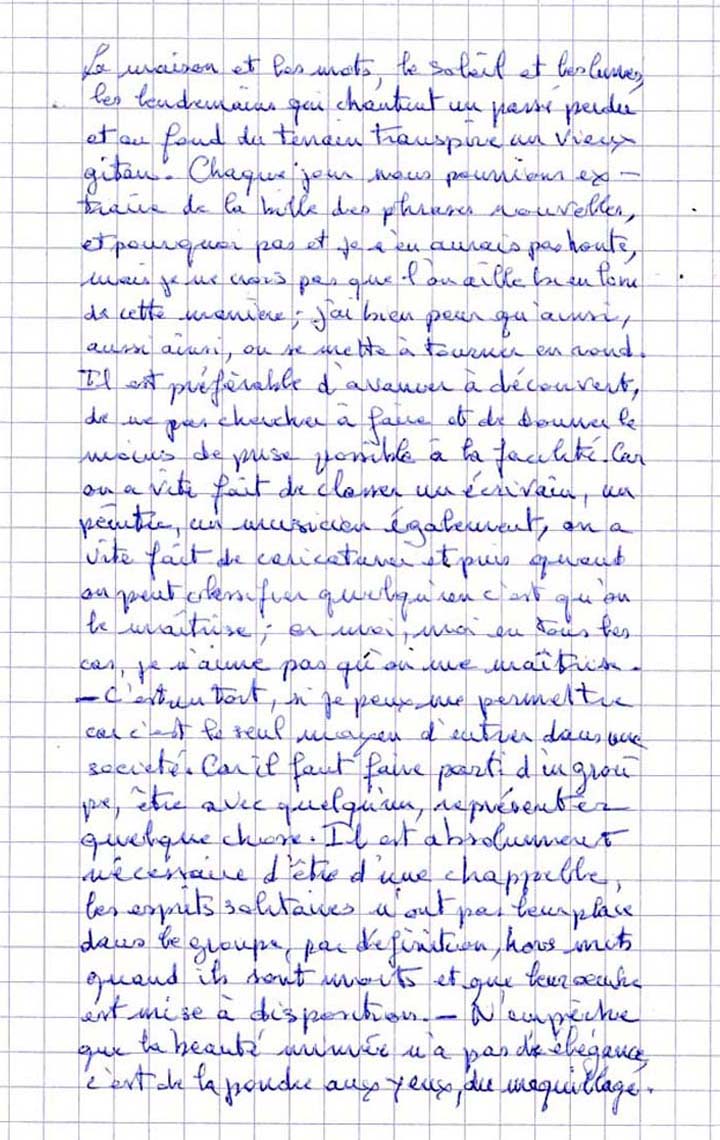 La maison et les mots, le soleil et les lunes,
les lendemains qui chantent un passé perdu
et au fond du terrain transpire un vieux
gitan. Chaque jour nous pourrions ex-
traire de la bille des phrases nouvelles,
et pourquoi pas et je n'en aurais pas honte,
mais je ne crois pas que l'on aille bien loin
de cette manière ; j'ai bien peur qu'ainsi,
aussi ainsi, on se mette à tourner en rond.
Il est préférable d'avancer à découvert,
de ne pas chercher à faire et de donner le
moins de prise possible à la facilité. Car
on a vite fait de classer un écrivain, un
peintre, un musicien également, on a
vite fait de caricaturer et puis quand
on peut classifier quelqu'un c'est qu'on
le maîtrise ; or moi, moi en tous les
cas, je n'aime pas qu'on me maîtrise.
- C'est un tort, si je peux me permettre
car c'est le seul moyen d'entrer dans une
societé. Car il faut faire parti d'un grou
pe, être avec quelqu'un, représenter
quelque chose. Il est absolument
nécessaire d'être d'une chappelle,
les esprits solitaires n'ont pas leur place
dans le groupe, par définition, hors mits
quand ils sont morts et que leur oeuvre
est mise à disposition. - N'empêche
que la beauté mimée n'a pas d'élégance,
c'est de la poudre aux yeux, du maquillage.